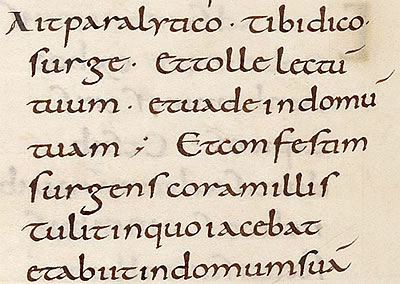 Aitparalytico · tibidico·
surge · Ettolle lectū
tuum · etuade indomū
tuam ; Etconfestim
surgens coramillis
tulitinquo iacebat
etabiitindomumsuā